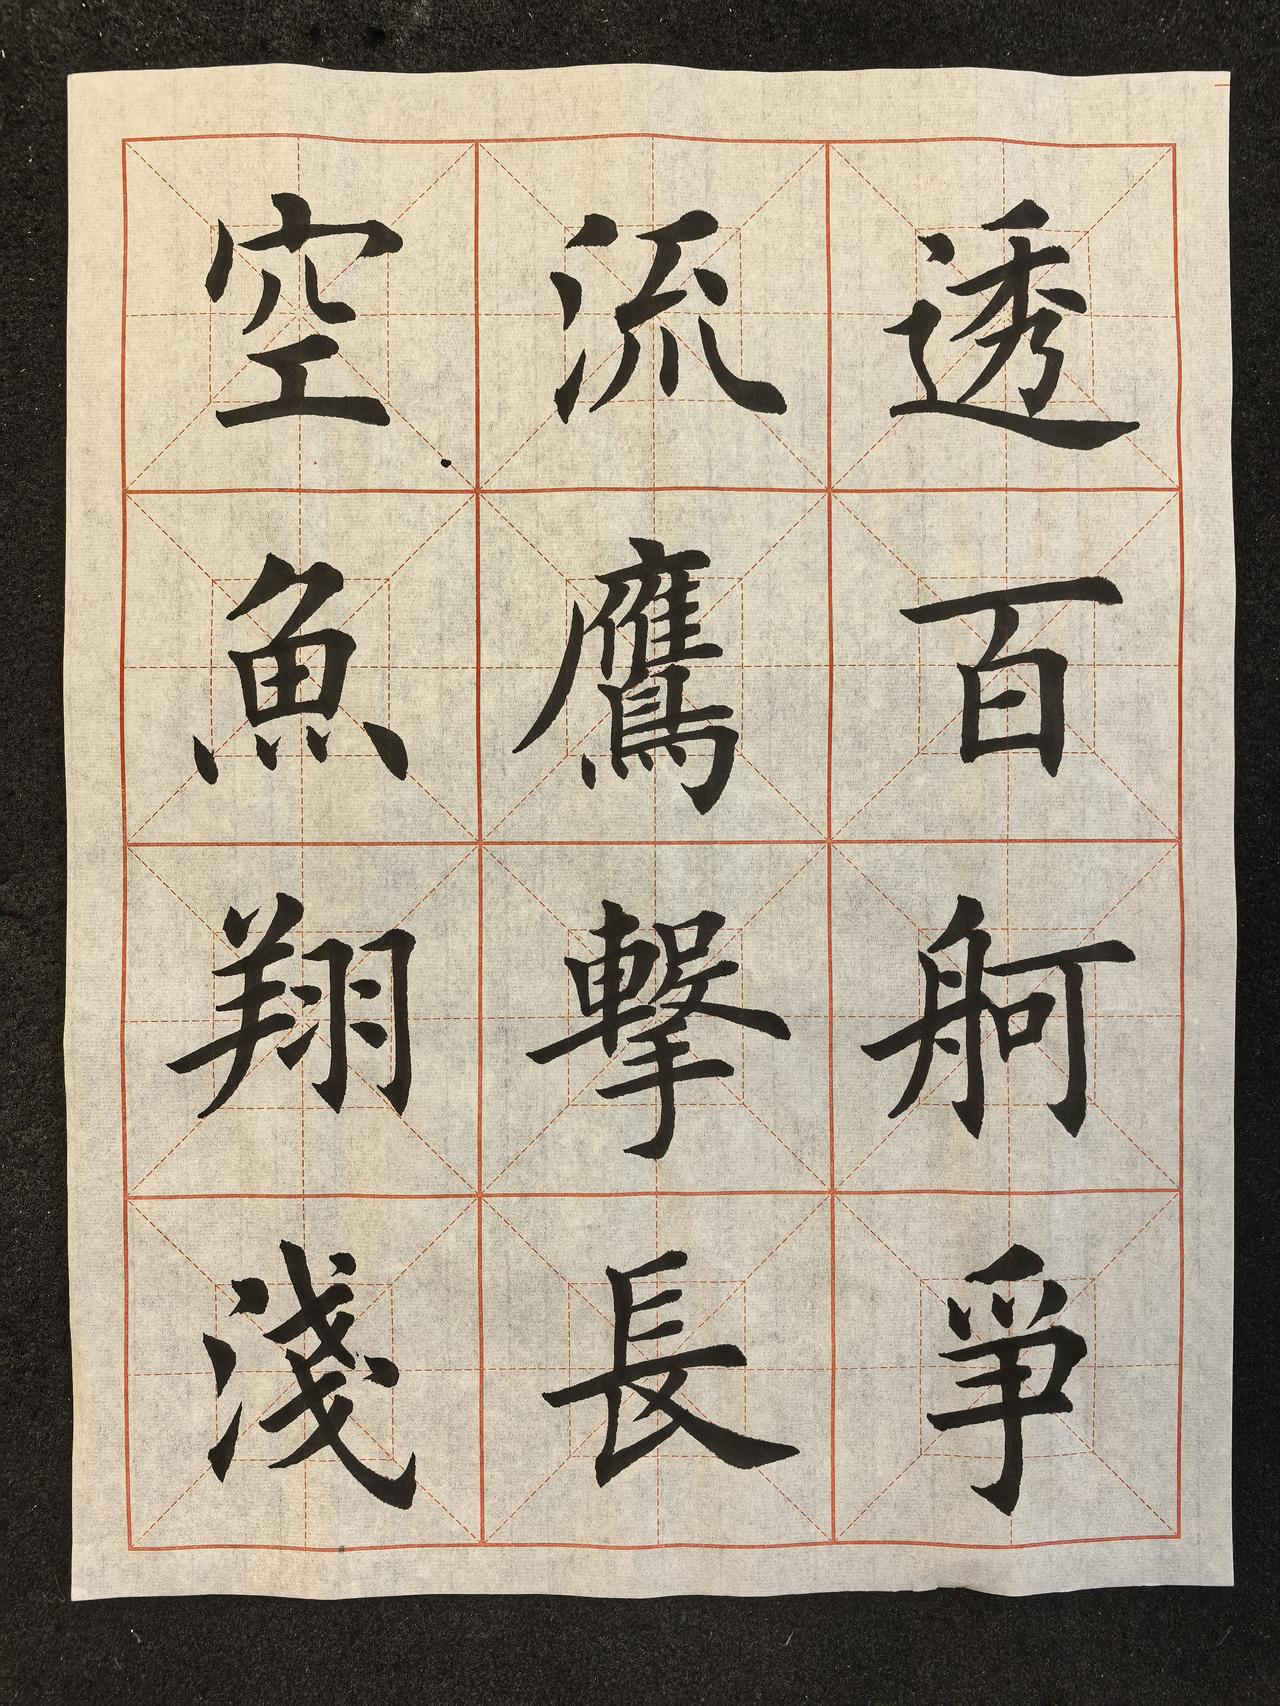 透百舸爭
流鷹擊長
空魚翔淺